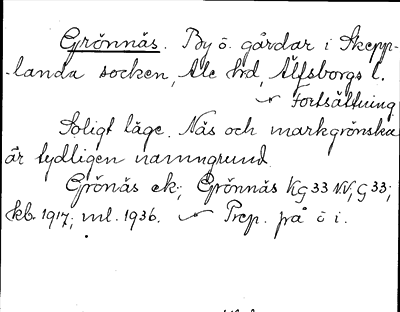 Grönnäs. By ö. gårdar i Skepp-
-landa socken, Ale hd, Älfsborgs l.
Fortsättning
Soligt läge. Näs och markgrönska
är tydligen namngrund.
Grönäs ek; Grönnäs KG 33 NV, G 33;
kb. 1917; ml. 1936. Prep. på ö i.